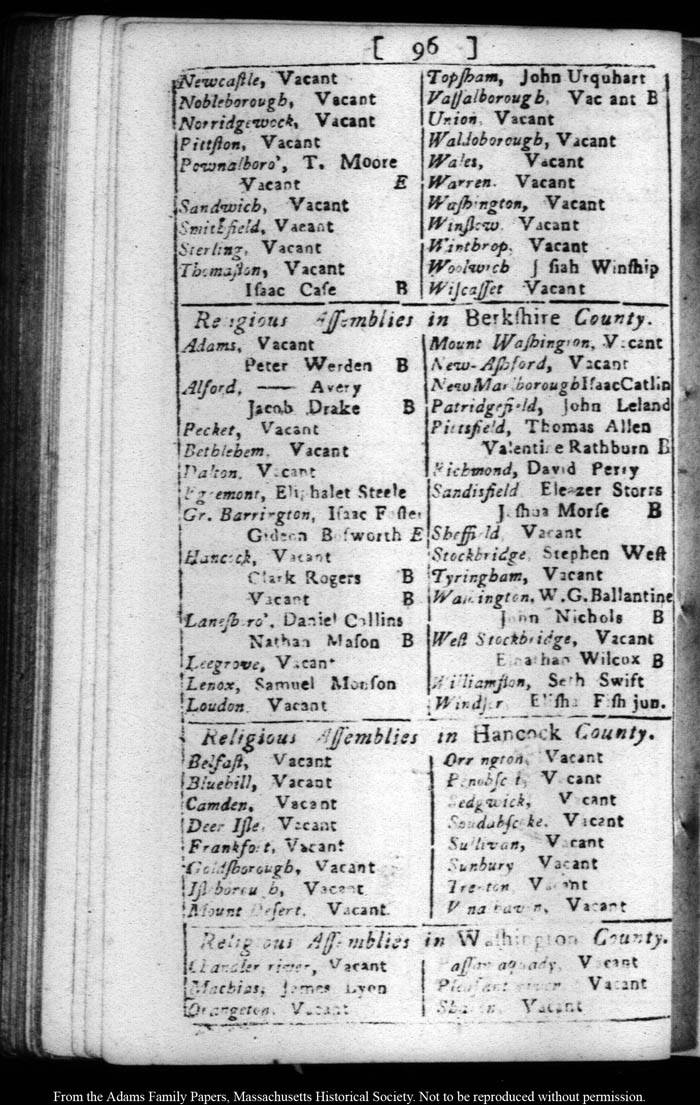 [ 96 ]
Newcaſtle, Vacant
Nobleborough, Vacant
Norridgewock, Vacant
Pittſton, Vacant
Pownalboro', T. Moore
Vacant E
Sandwich, Vacant
Smithfield, Vacant
Sterling, Vacant
Thomaſton, Vacant
Iſaac Caſe B
Topſham, John Urquhart
Vaſſalborough, Vac ant B
Union, Vacant
Waldoborough, Vacant
Wales, Vacant
Warren. Vacant
Waſhington, Vacant
Winſlow. Vacant
Winthrop, Vacant
Woolwich J ſiah Winſhip
Wiſcaſſet Vacant
Religious Aſſemblies in Berkſhire County.
Adams, Vacant
Peter Werden B
Alford, —— Avery
Jacob Drake B
Pecket, Vacant
Bethlehem. Vacant
Dalton, Vacant
Egremont, Eliphalet Steele
Gr. Barrington, Iſaac Foſter
Gideon Boſworth E
Hancock, Vacant
Clark Rogers B
Vacant B
Laneſboro', Daniel Collins
Nathan Maſon B
Leegrove, Vacant
Lenox, Samuel Monſon
Loudon. Vacant
Mount Waſhington, Vacant
New-Aſhford, Vacant
New Marlborough Iſaac Catlin
Patridgefield, John Leland
Pittsfield, Thomas Allen
Valentine Rathburn B
Richmond, David Perry
Sandisfield Eleazer Storrs
Joſhua Morſe B
Sheffield, Vacant
Stockbridge, Stephen Weſt
Tyringham, Vacant
Waſhington, W. G. Ballantine
John Nichols B
Weſt Stockbridge, Vacant
Elnathan Wilcox B
Williamſton, Seth Swift
Windſor, Eliſha Fiſh jun.
Religious Aſſemblies in Hancock County.
Belfaſt, Vacant
Bluehill, Vacant
Camden, Vacant
Deer Iſle, Vacant
Frankfort, Vacant
Goldſborough, Vacant
Iſleborough, Vacant
Mount Deſert. Vacant.
Orrington, Vacant
Penobſcot, Vacant
Sedgwick, Vacant
Vacant
Sullivan, Vacant
Sunbury Vacant
Trenton, Vacant
Vinalhaven, Vacant
Religious Aſſemblies in Waſhington County.
Chandler river, Vacant
Machias, James Lyon
Orangeton. Vacant
Vacant
Pleaſant river Vacant
Vacant
From the Adams Family Papers, Massachusetts Historical Society. Not to be reproduced without permission.